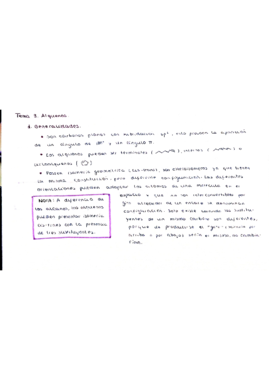 Tema 3. Alquenos
1. Generalidades.
• Son carbonos planos con hibridación sp², esto provoca la aparición
de un ángulo de 120º y un ángulo π.
• Los alquenos pueden ser terminales ( ), internos ( ) o
• Poseen isomería geométrica (cis-trans), son estereoisómeros ya que tienen
la misma constitución pero distinta configuración. Las diferentes
orientaciones pueden adoptar los átomos de una molécula en el
espacio y que no son interconvertibles por
giro alrededor de un enlace se denomina
configuración. Solo existe cuando los sustitu-
yentes de un mismo carbono son diferentes,
porque de producirse el "giro"
arriba y por abajo sería el mismo no cambia-
ría.
NOTA: A diferencia de
los alcanos, los alquenos
pueden presentar isomería
cis-trans con la presencia
de tres sustituyentes.